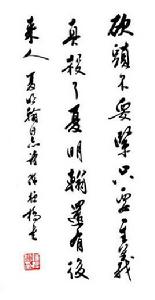 砍頭不要緊只要主義
真殺了夏明翰還有後
來人 夏明翰同志詩